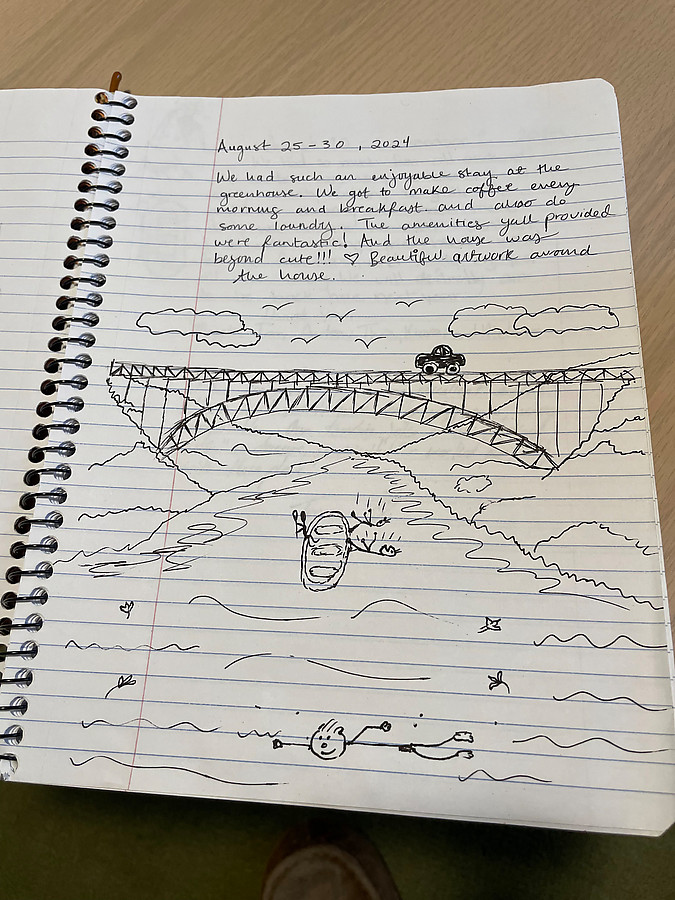 August 25-30, 2024
We had such an enjoyable stay at the
greenhouse. We got to make coffee every
morning and breakfast. and also do
some laundry. The amenities yall provided
were fantastic! And the house was
beyond cute!!! ♡ Beautiful artwork around
the house.